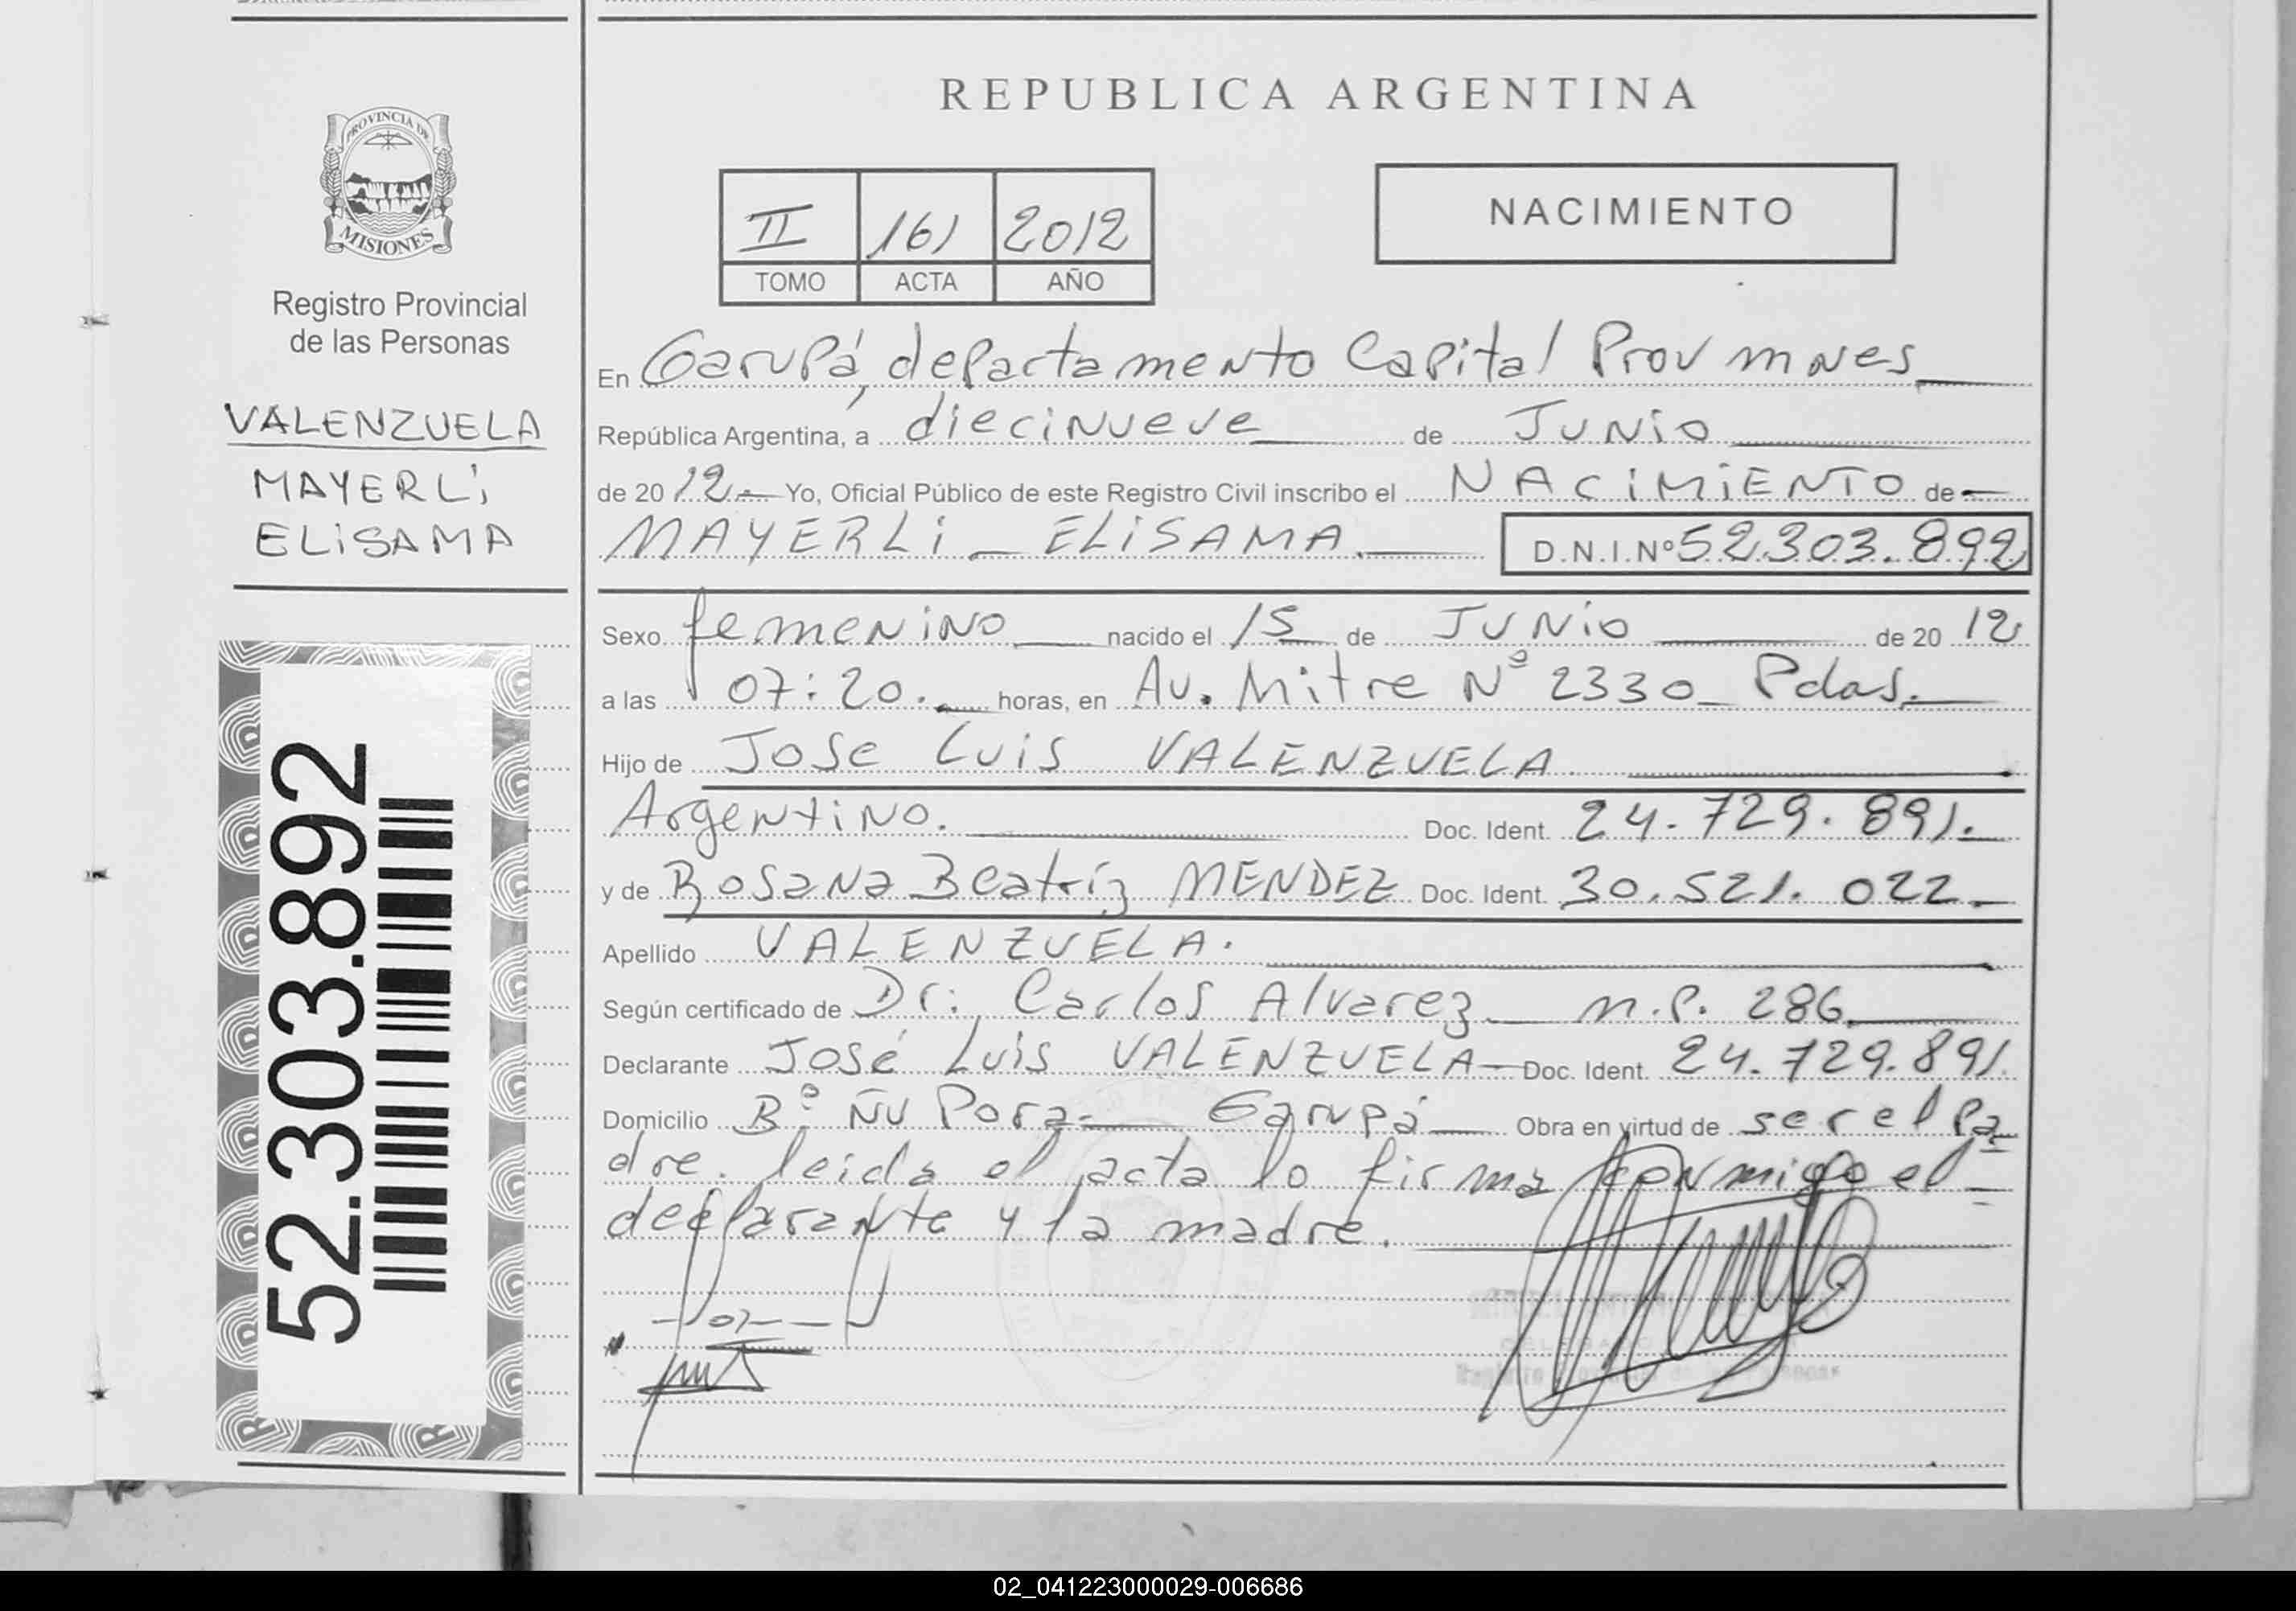 REPUBLICA ARGENTINA
PROVINCIA DE
MISIONES
Registro Provincial
de las Personas
VALENZUELA
MAYERLI
ELISAMA
52.303.892
II 161 2012
TOMO ACTA AÑO
NACIMIENTO
En Garupá, departamento Capital Prov mnes
República Argentina, a diecinueve de Junio
de 20 12.- Yo, Oficial Público de este Registro Civil inscribo el NACIMIENTO de
MAYERLI - ELISAMA. D.N.I.Nº 52.303.892
Sexo femenino nacido el 15 de Junio de 20 12
a las 07:20. horas, en Av. Mitre Nº 2330 Pdas.
Hijo de Jose Luis VALENZUELA
Argentino. Doc. Ident. 24.729.891.
y de Rosana Beatriz MENDEZ Doc. Ident. 30.521.022.
Apellido VALENZUELA.
Según certificado de Dr. Carlos Alvarez m.p. 286
Declarante José Luis VALENZUELA Doc. Ident. 24.729.891.
Domicilio Bº Ñu Pora- Garupá Obra en virtud de ser el pa
dre. leida el acta lo firma conmigo el
declarante y la madre.
02_041223000029-006686